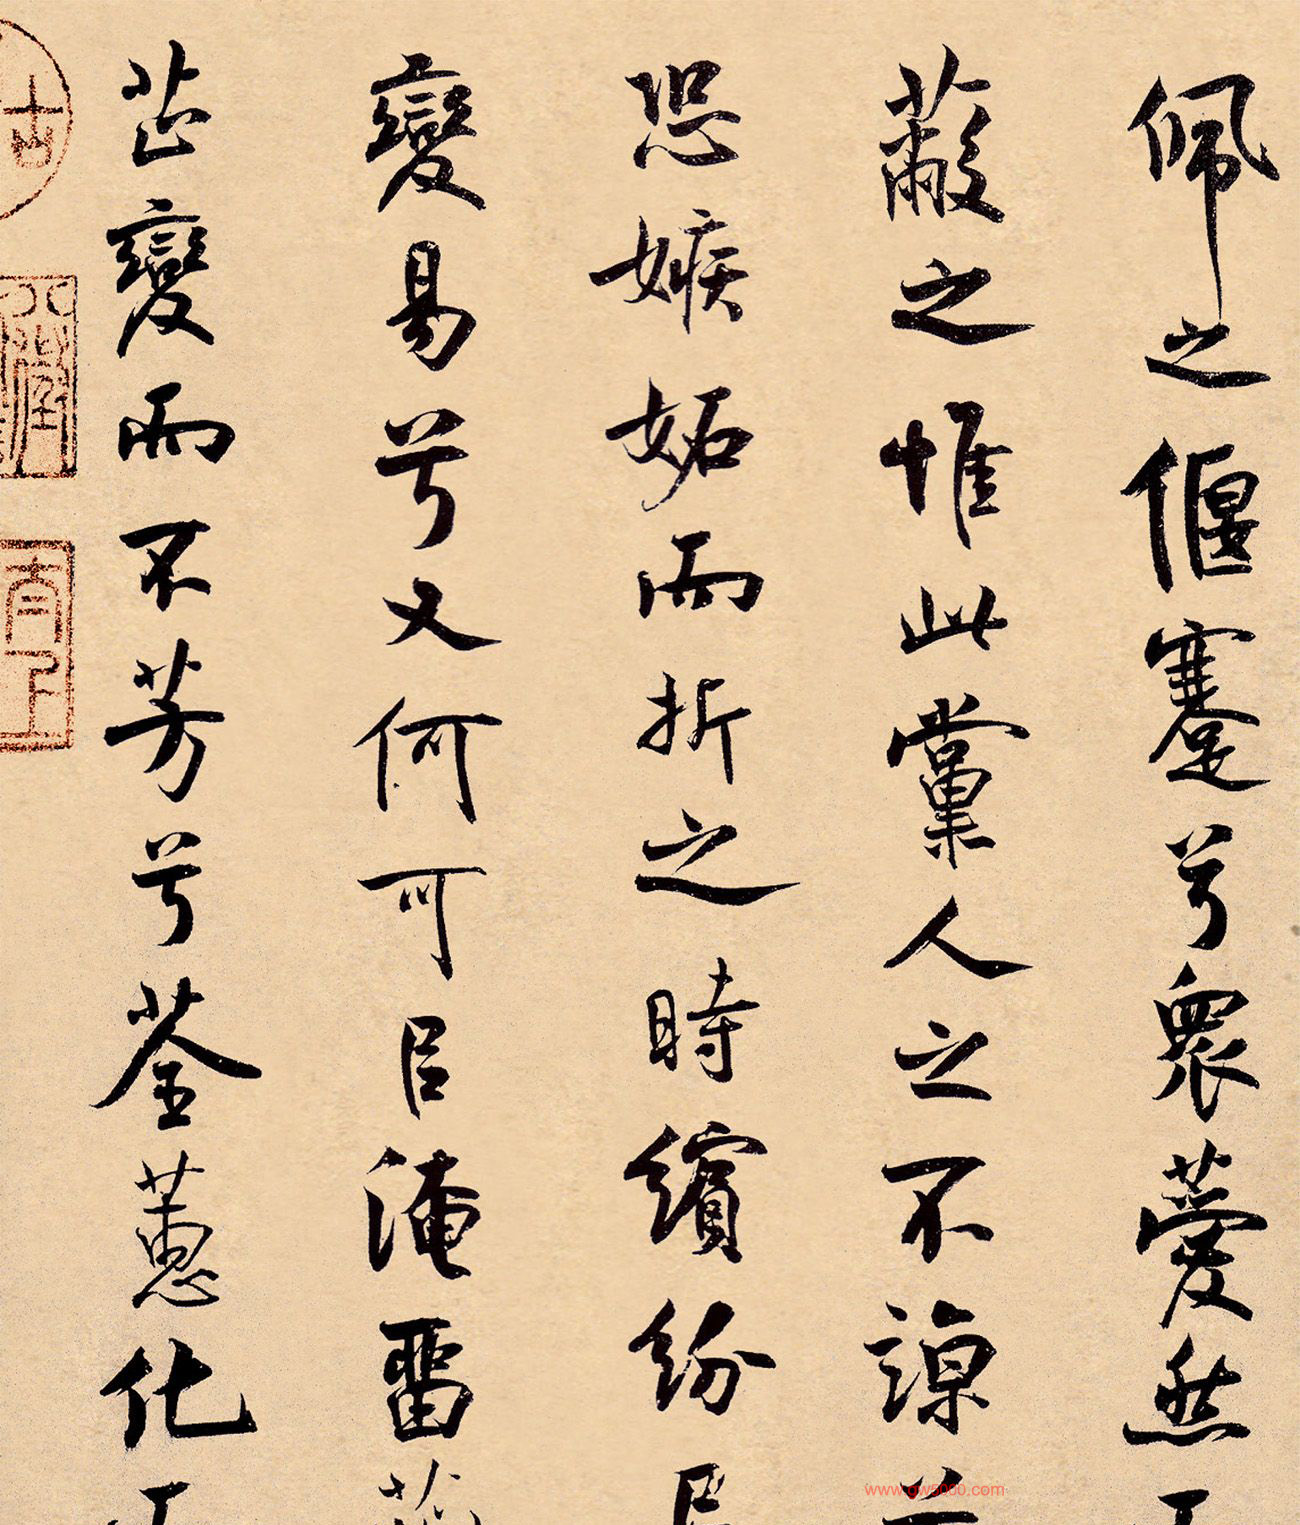 佩之偃蹇兮眾薆然
蔽之惟此黨人之不諒
恐嫉妬而折之時繽紛
變易兮又何可㠯淹畱
芷變而不芳兮荃蕙化
www.gw5000.com